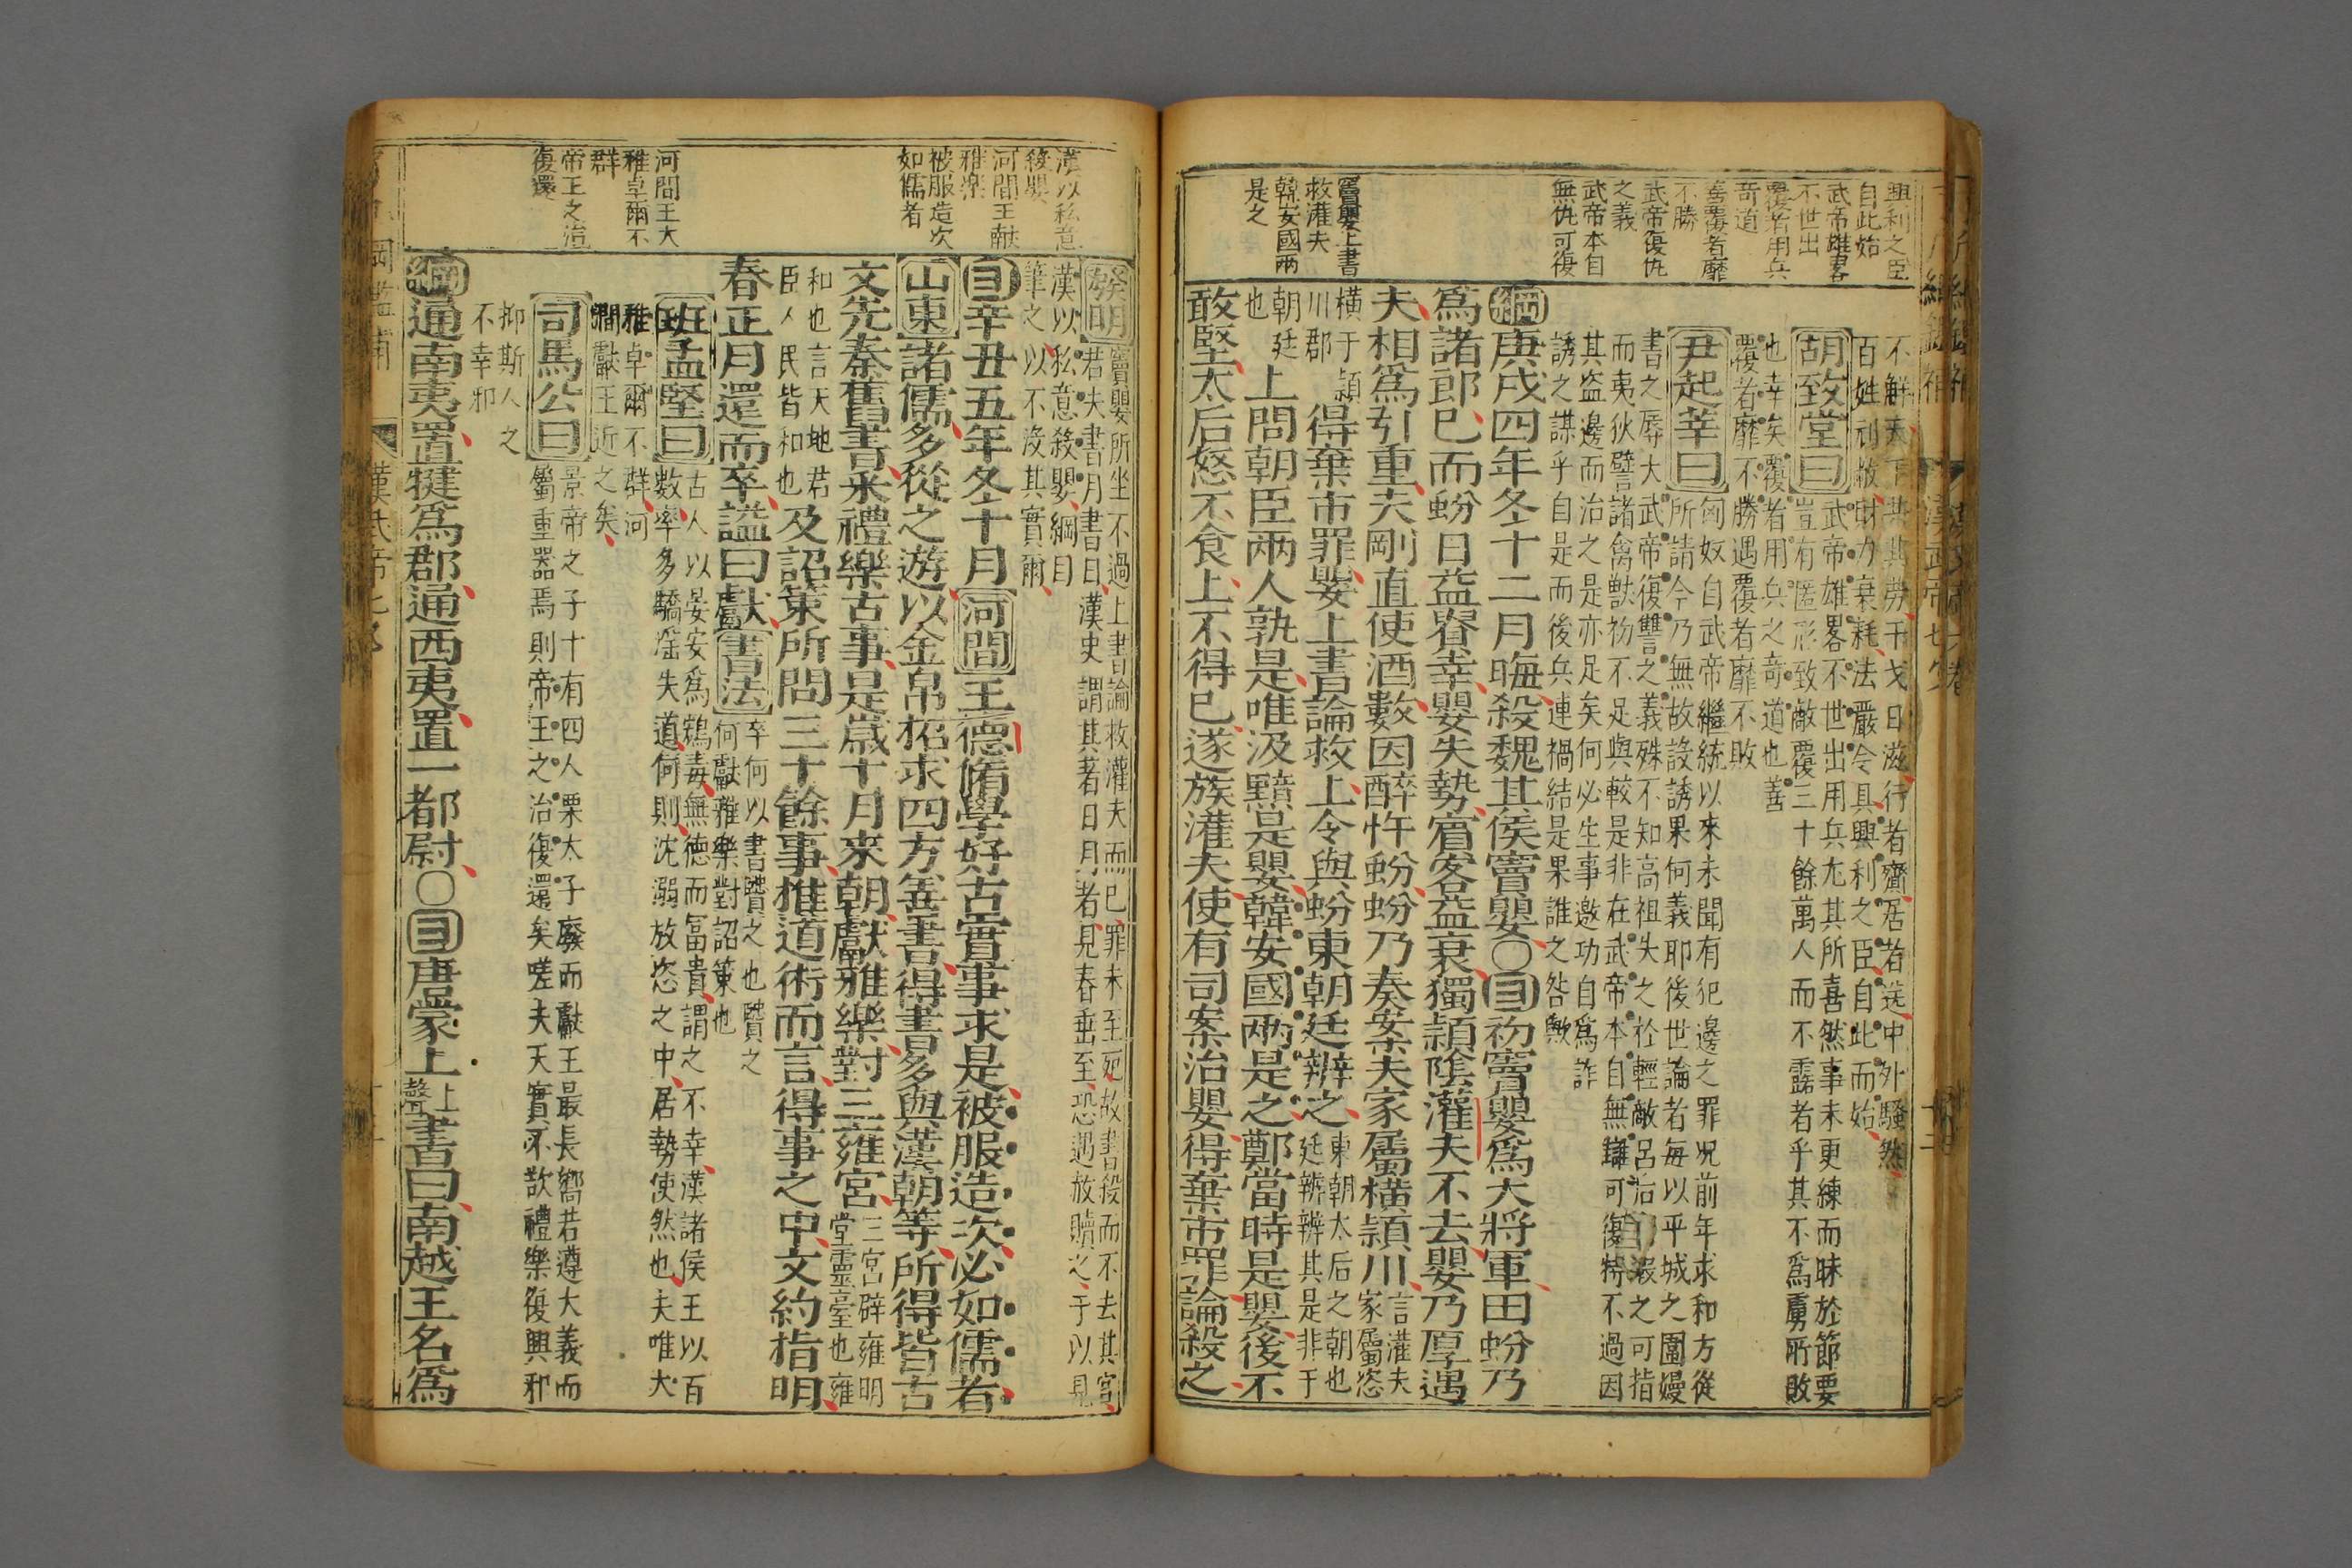 興利之臣
自此始
武帝雄畧
不世出
覆者用兵
竒道
善覆者靡
不勝
武帝復仇
之義
武帝本自
無仇可復
竇嬰上書
救灌夫
韓安國兩
是之
不解天下共其勞干戈日滋行者齎居者送中外騷然
百姓刓敝財力衰耗法嚴令具興利之臣自此而始
胡致堂曰
武帝雄畧不世出用兵尤其所喜然事未更練而昧於節要
豈有匿形致敵覆三十餘萬人而不露者乎其不爲虜所敗
也幸矣覆者用兵之竒道也善
覆者靡不勝遇覆者靡不敗
尹起莘曰
匈奴自武帝繼統以來未聞有犯邊之罪况前年求和方從
所請今乃無故設誘果何義耶後世論者每以平城之圍嫚
書之辱大武帝復讐之義殊不知高祖失之於輕敵呂后之可指
而夷狄譬諸禽獸物不足與較是非在武帝本自無讎可復特不過因
其盗邊而治之是亦足矣何必生事邀功自爲詐
誘之謀乎自是而後兵連禍結是果誰之咎歟
綱庚戌四年冬十二月晦殺魏其侯竇嬰○目初竇嬰爲大將軍田蚡乃
爲諸郎已而蚡日益貴幸嬰失勢賓客益衰獨潁陰灌夫不去嬰乃厚遇
夫相爲引重夫剛直使酒數因醉忤蚡蚡乃奏案夫家屬橫潁川言灌夫
家屬恣
橫于潁
川郡得棄市罪嬰上書論救上令與蚡東朝廷辨之東朝太后之朝也
廷辨辨其是非于
朝廷
也上問朝臣兩人孰是唯汲黯是嬰韓安國兩是之鄭當時是嬰後不
敢堅太后怒不食上不得已遂族灌夫使有司案治嬰得棄市罪論殺之
漢以私意
殺嬰
河間王獻
雅樂
被服造次
如儒者
河間王大
雅卓爾不
群
帝王之治
復還
發明
竇嬰所坐不過上書論救灌夫而已罪未至死故書殺而不去其官
君夫書月書日漢史謂其著日月者見春垂至恐遇放贖之于以見
漢以私意殺嬰綱目
筆之以不沒其實爾
目辛丑五年冬十月河間王德脩學好古實事求是被服造次必如儒者
山東諸儒多從之遊以金帛招求四方善書得書多與漢朝等所得皆古
文先秦舊書采禮樂古事是歲十月來朝獻雅樂對三雍宮三宮辟雍明
堂靈臺也雍
和也言天地君
臣人民皆和也及詔策所問三十餘事推道術而言得事之中文約指明
春正月還而卒謚曰獻書法卒何以書賢之也賢之
何獻雅樂對詔策也
班孟堅曰
古人以晏安爲鴆毒無德而冨貴謂之不幸漢諸侯王以百
數率多驕滛失道何則沈溺放恣之中居勢使然也夫唯大
雅卓爾不群河
間獻王近之矣
司馬公曰
景帝之子十有四人栗太子廢而獻王最長嚮若遵大義而
屬重器焉則帝王之治復還矣嗟夫天實不欲禮樂復興邪
抑斯人之
不幸邪
綱通南夷置犍爲郡通西夷置一都尉○目唐蒙上上聲書曰南越王名爲